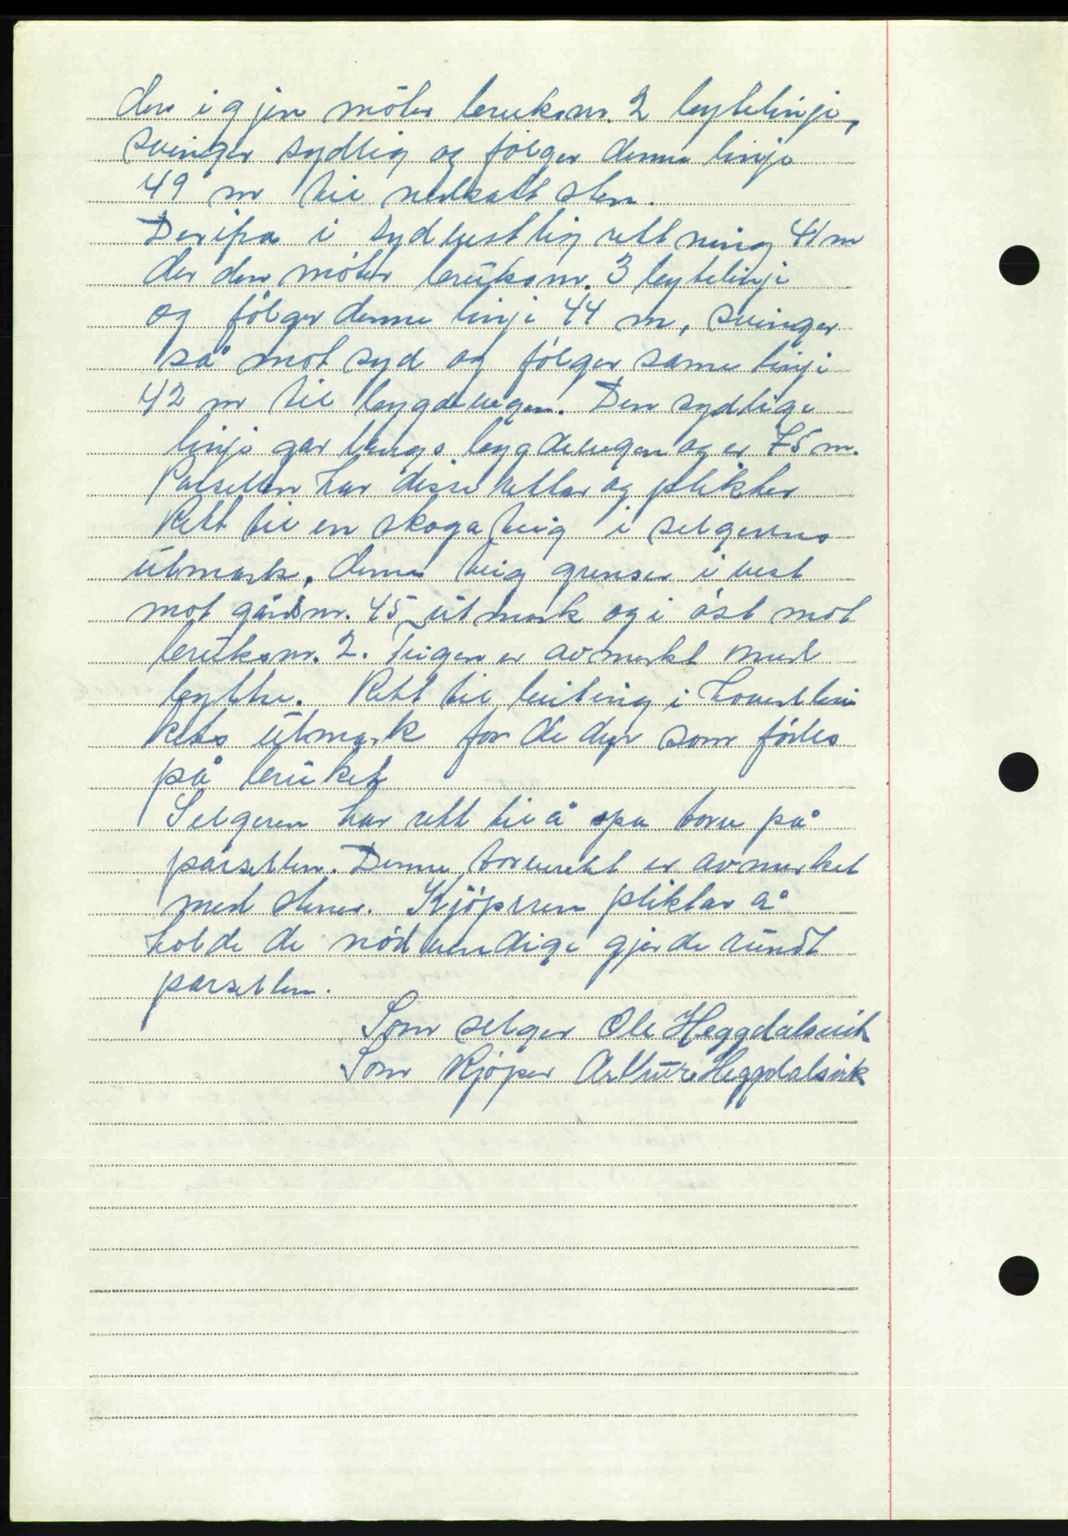 der igjen möter bruksnr. 2 bytelinje,
svinger sydlig og følger denne linje
49 m til nedsatt sten.
Derifra i sydvestlig rettning 41 m
der den møter bruksnr. 3 bytelinje
og følger denne linje 44 m, svinger
så mot syd og følger same linje
42 m til bygdevegen. Den sydlige
linje gar langs bygdevegen og er 75 m.
Parsellen har disse rettar og plikter
Rett til en skogateig i selgerens
utmark, denne teig grenser i vest
mot gårdsnr. 45 utmark og i öst mot
bruksnr. 2. Teigen er avmerkt med
bytte. Rett til beiting i hovedbru
kets utmark for de dyr som födes
på bruket
Selgeren har rett til å spa torv på
parsellen. Denne torvrett er avmerket
med stener. Kjöperen pliktar å
holde de nödvendige gjerde rundt
parsellen.
Som selger Ole Heggdalsvik
Som kjøper Arthur Heggdalsvik